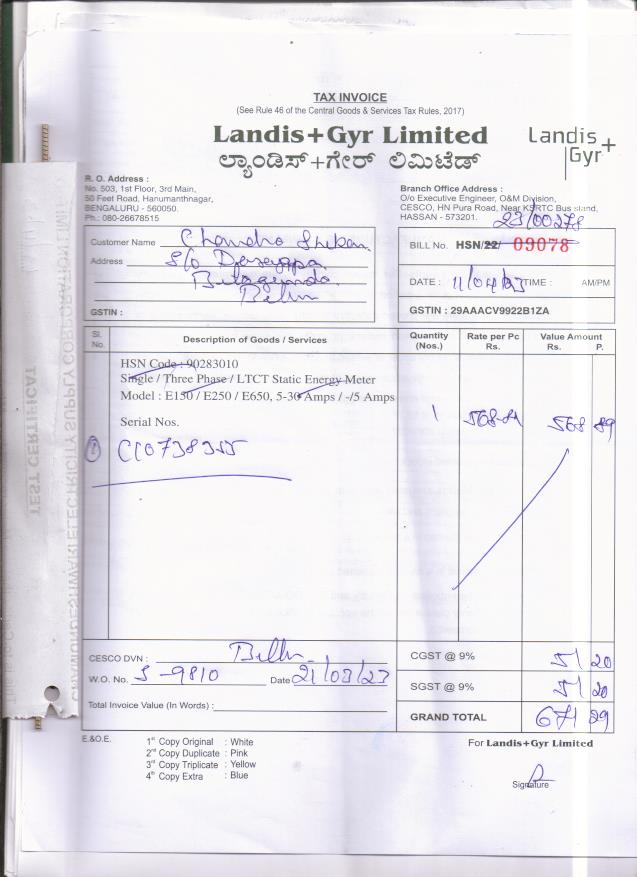 TAX INVOICE
(See Rule 46 of the Central Goods & Services Tax Rules, 2017)
Landis+Gyr Limited
ಲ್ಯಾಂಡಿಸ್+ಗೇರ್ ಲಿಮಿಟೆಡ್
Landis+
Gyr
R. O. Address :
No. 503, 1st Floor, 3rd Main,
50 Feet Road, Hanumanthnagar,
BENGALURU - 560050.
Ph.: 080-26678515
Branch Office Address :
O/o Executive Engineer, O&M Division,
CESCO, HN Pura Road, Near KSRTC Bus stand,
HASSAN - 573201.
23/00278
Customer Name Chandra Shekar
Address S/o
GSTIN :
BILL No. HSN/22/ 09078
DATE : 11/04/23 TIME : AM/PM
GSTIN : 29AAACV9922B1ZA
Sl. No. Description of Goods / Services Quantity (Nos.) Rate per Pc Rs. Value Amount Rs. P.
HSN Code : 90283010
Single / Three Phase / LTCT Static Energy Meter
Model : E150 / E250 / E650, 5-30 Amps / -/5 Amps
Serial Nos.
1 568-89 568 89
① CC0738355
CESCO DVN :
W.O. No. S-9810 Date 21/03/23
Total Invoice Value (In Words) :
CGST @ 9% 51 20
SGST @ 9% 51 20
GRAND TOTAL 671 29
E.&O.E.
1st Copy Original : White
2nd Copy Duplicate : Pink
3rd Copy Triplicate : Yellow
4th Copy Extra : Blue
For Landis+Gyr Limited
Signature
TEST CERTIFICAT
CHAMUNDESHWARI ELECTRICITY SUPPLY CORPORATION LIMIT